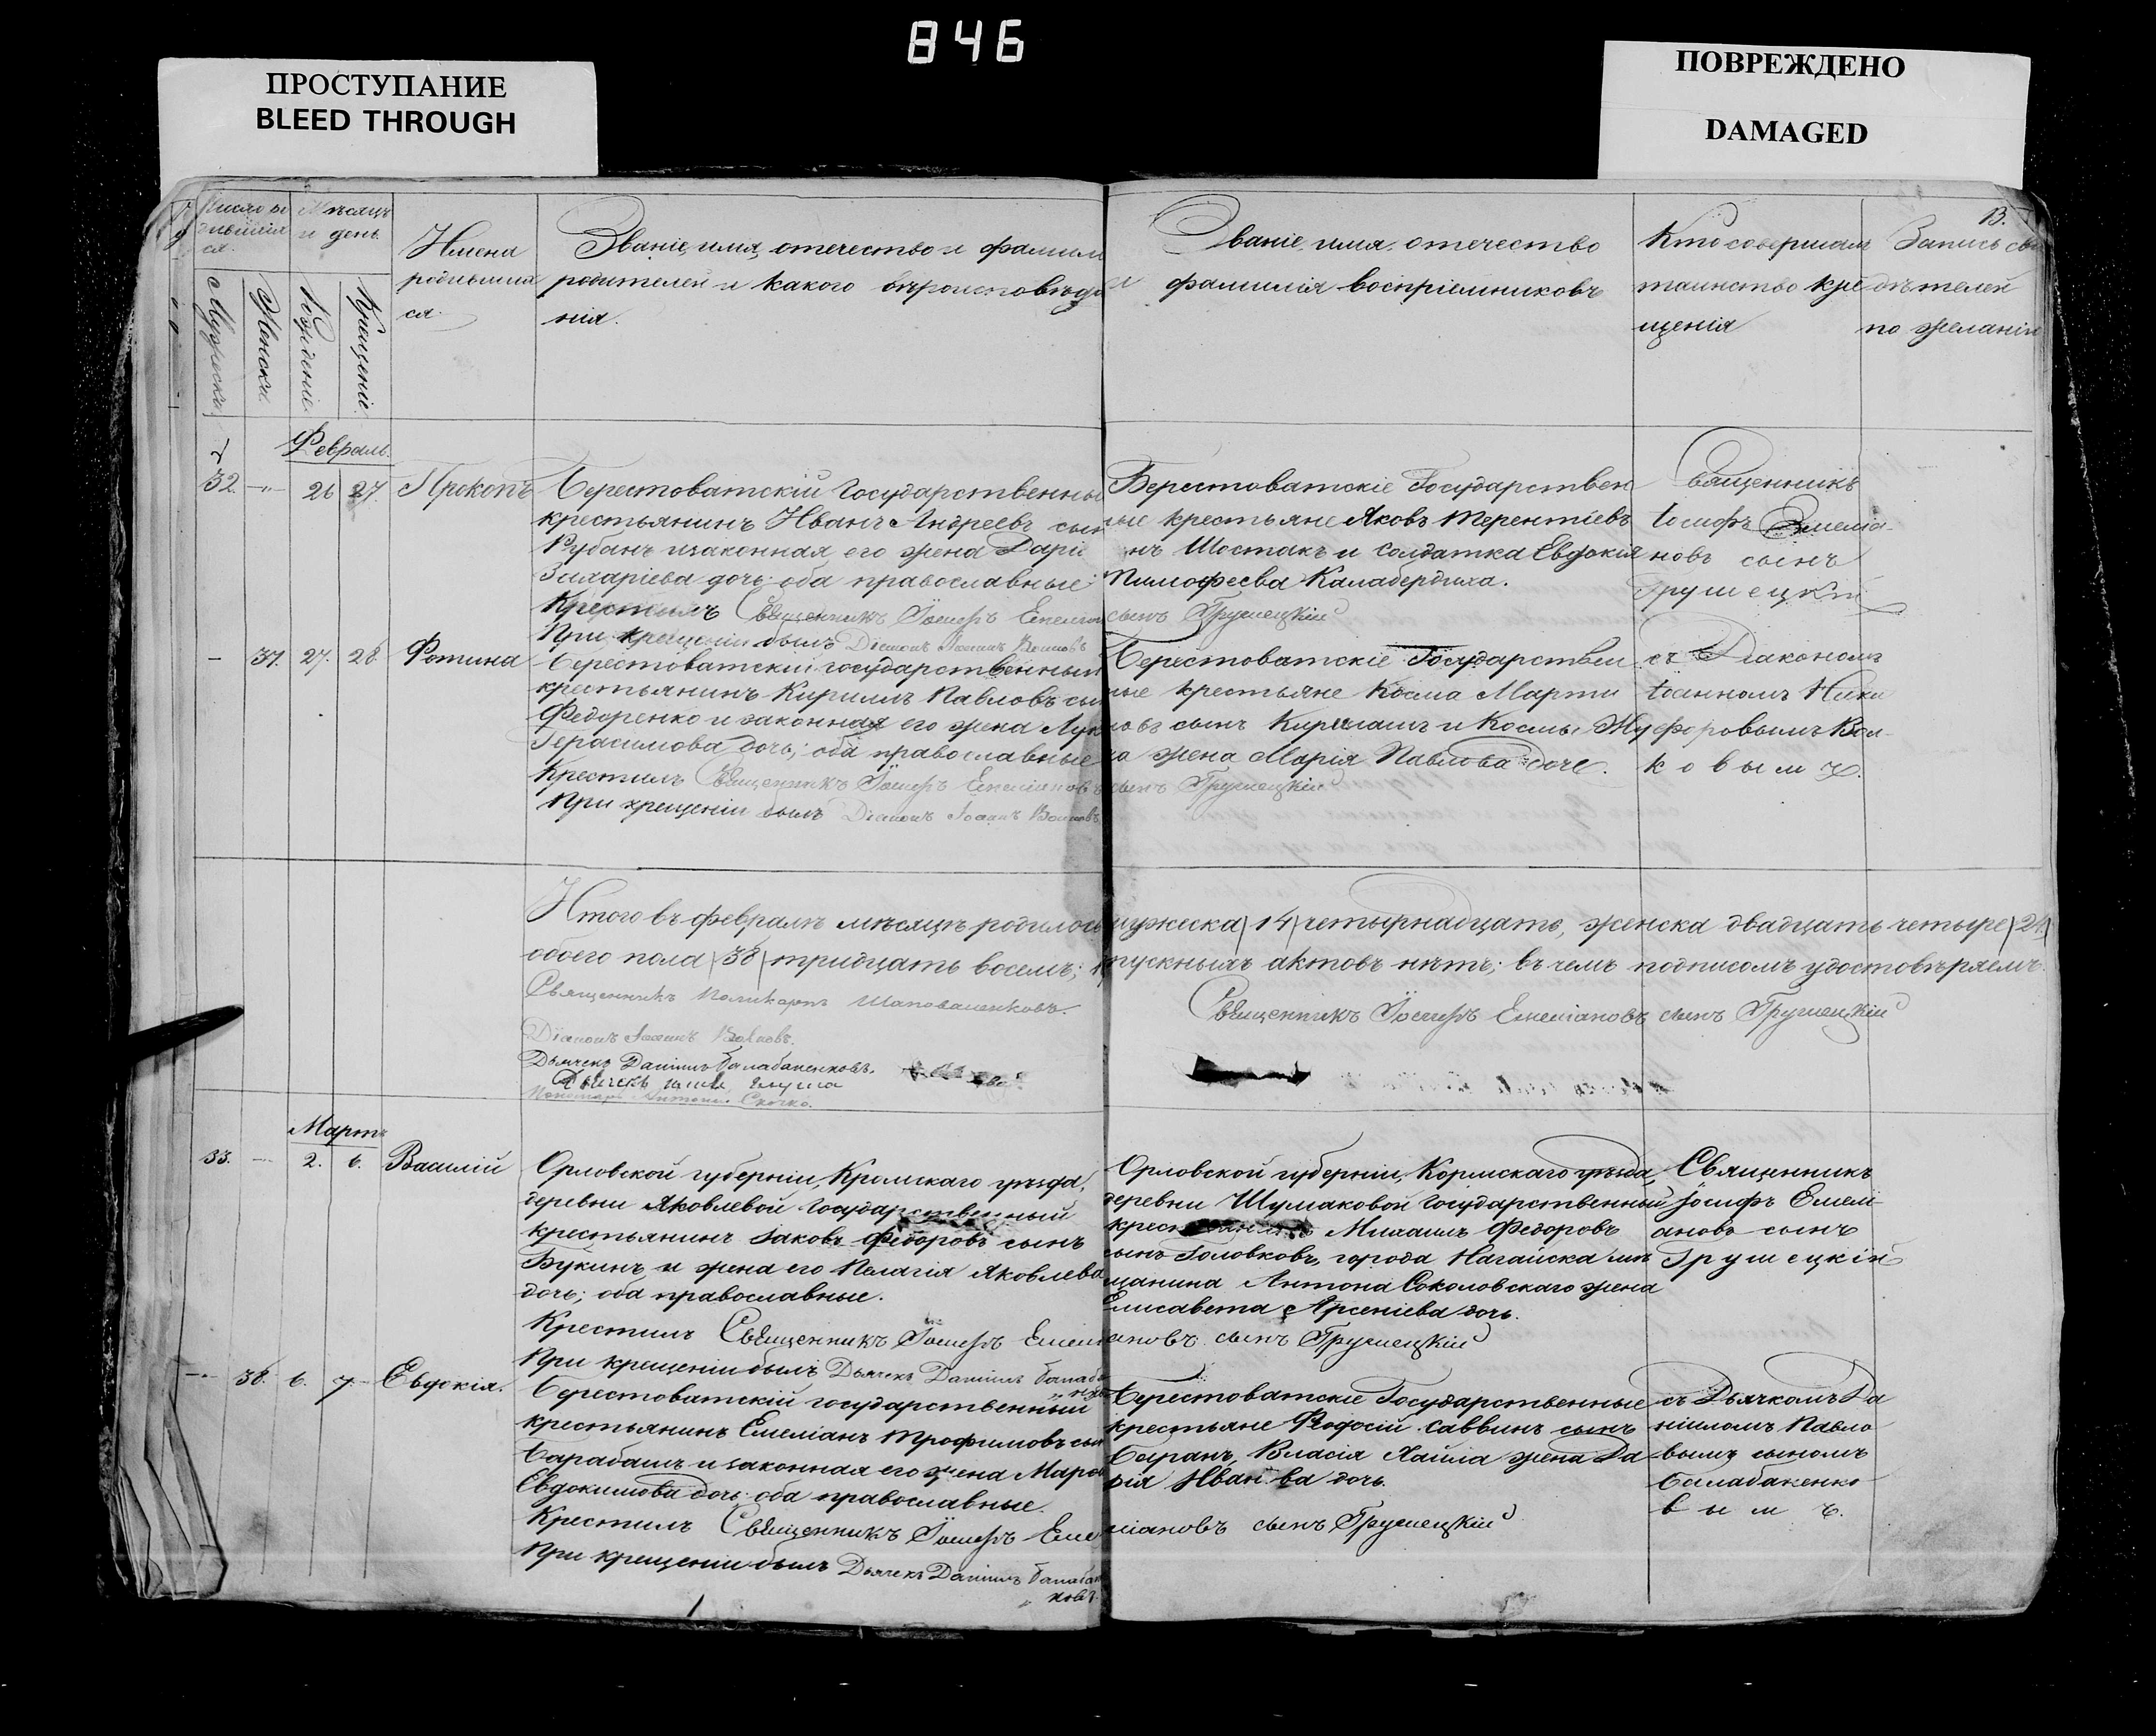 846
ПРОСТУПАНИЕ
BLEED THROUGH
ПОВРЕЖДЕНО
DAMAGED
13.
Мѣсяцъ
и день.
Мужеска
Женска
Рожденіе
Крещеніе
Имена
родившия
ся.
Званіе, имя, отечество и фамили
родителей и какого вѣроисповѣда
нія.
Званіе, имя, отечество
и фамилія воспріемниковъ
Кто совершалъ
таинство кре
щенія
Запись сви
дѣтелей
по желанію
Февраль.
32. 26 27. Прокопъ
Берестоватскій Государственны
крестьянинъ Иванъ Андреевъ сын
Рубанъ изаконная его жена Дарія
Захаріева дочь оба православные:
Крестилъ Священникъ Іосифъ Емеліан
сынъ Грушецкій
При крещеніи былъ Діаконъ Іоаннъ Волковъ
Берестоватскіе Государствен
ные крестьяне Яковъ Терентіевъ
нъ Шостакъ и солдатка Евдокія
Тимофеева Калабердиха.
Священникъ
Іосифъ Емеліа-
новъ сынъ
Грушецкій
— 37. 27. 28. Фотина
Берестоватскій государственный
крестьянинъ Кириллъ Павловъ сы
Федоренко и законная его жена Лук
Герасимова дочь; оба православные
Крестилъ Священникъ Іосифъ Емеліановъ
сынъ Грушецкій
При крещеніи былъ Діаконъ Іоаннъ Волковъ
Берестоватскіе Государствен
ные крестьяне Косма Марти
новъ сынъ и Космы
на жена Марія Павлова дочь.
съ Діакономъ
Іоанномъ Ники
форовымъ Вол-
ковымъ.
Итого въ февралѣ мѣсяцѣ родилось мужеска (14) четырнадцать, женска двадцать четыре (24)
обоего пола (38) тридцать восемь; пускныхъ актовъ нѣтъ; въ чемъ подписомъ удостовѣряемъ.
Священникъ Поликарпъ Шаповаленковъ.
Священникъ Іосифъ Емеліановъ сынъ Грушецкій
Діаконъ Іоаннъ Волковъ.
Дьячекъ Даніилъ Балабаненковъ.
Дьячекъ
Пономарь Антоній
Мартъ
33. — 2. 6. Василій
Орловской губерніи, Кромскаго уѣзда,
деревни Яковлевой Государственный
крестьянинъ Іаковъ Федоровъ сынъ
Букинъ и жена его Пелагія Яковлева
дочь; оба православные.
Крестилъ Священникъ Іосифъ Емелі
ановъ сынъ Грушецкій
При крещеніи былъ Дьячекъ Даніилъ Балаба
Орловской губерніи, Кормскаго уѣзда,
деревни Шумаковой Государственный
крес Михаилъ Федоровъ
сынъ Головковъ, города Нагайска мѣ
щанина Антона Соколовскаго жена
Елисавета Арсеніева дочь.
Священникъ
Іосифъ Емелі-
ановъ сынъ
Грушецкій
38. 6. 7. Евдокія.
Берестоватскій государственный
крестьянинъ Емеліанъ Трофимовъ сын
Барабашъ и законная его жена Мар
Евдокимова дочь оба православные.
Крестилъ Священникъ Іосифъ Еме
ліановъ сынъ Грушецкій
При крещеніи былъ Дьячекъ Даніилъ Балабан
ковъ
Берестоватскіе Государственные
крестьяне Феодосій Саввинъ сынъ
Баранъ, Власія Хайла жена Да
рія Иван ва дочь.
съ Дьячкомъ Да
ніиломъ Павло
вымъ сыномъ
Балабаненко
вымъ.